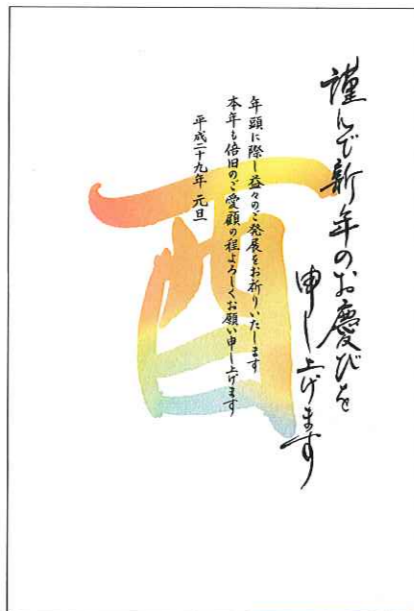 謹んで新年のお慶びを
申し上げます
年頭に際し益々のご発展をお祈りいたします
本年も倍旧のご愛顧の程よろしくお願い申し上げます
平成二十九年 元旦
酉